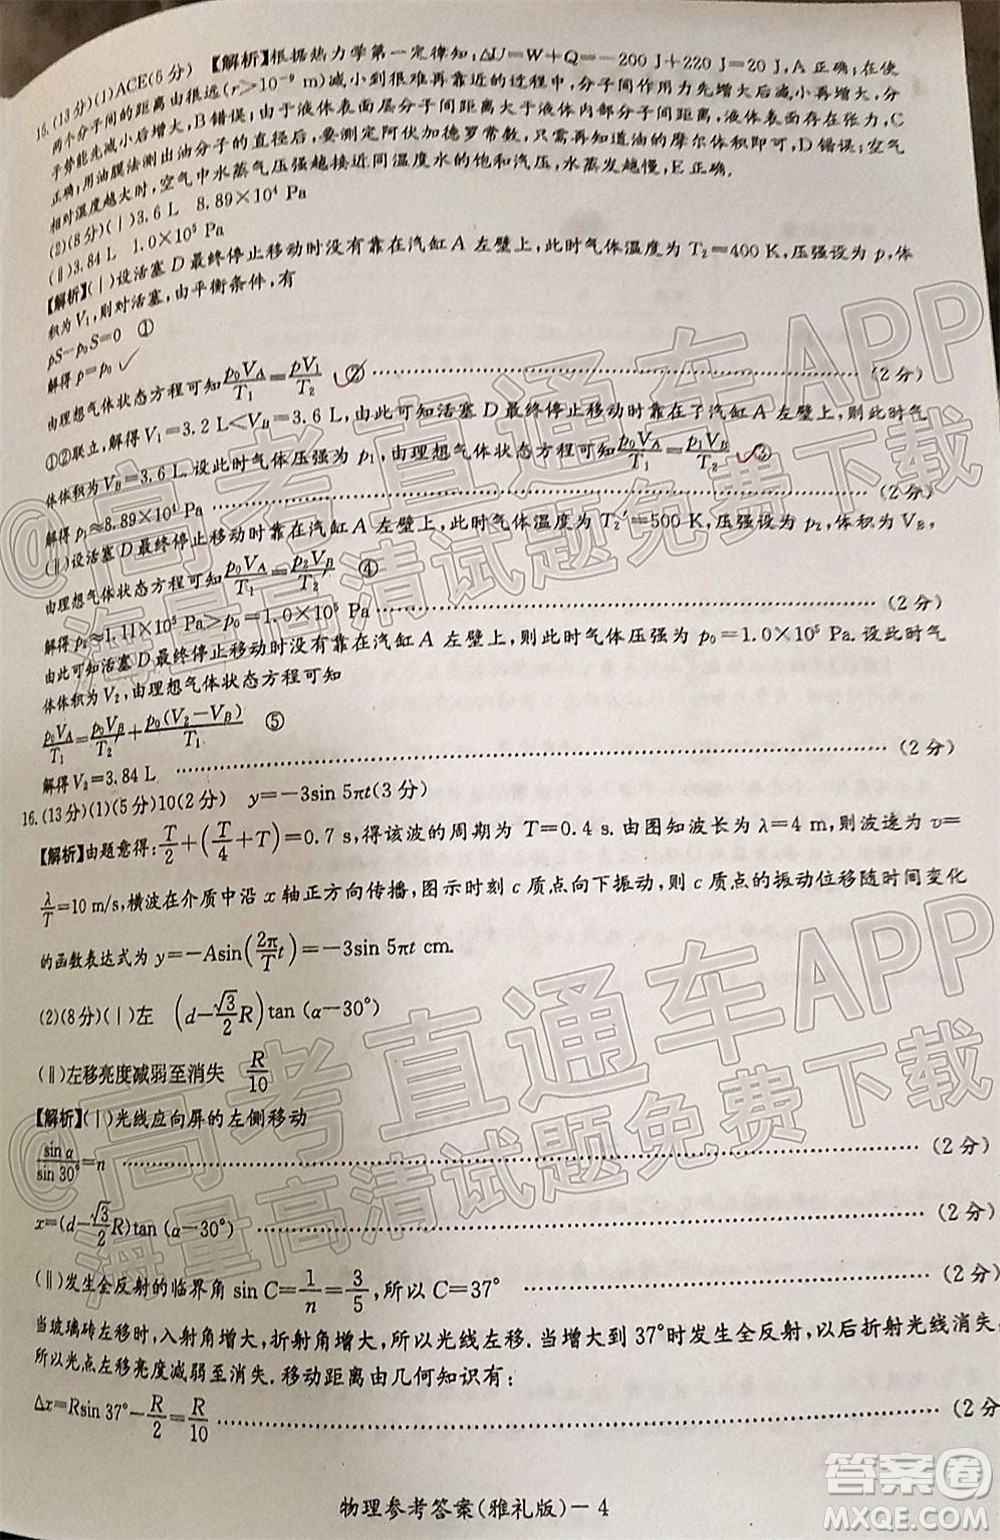 15.(13分)(1)ACE(5分) 【解析】根据热力学第一定律知,ΔU=W+Q=-200 J+220 J=20 J,A正确;在使
两个分子间的距离由很远(r>10⁻⁹ m)减小到很难再靠近的过程中,分子间作用力先增大后减小再增大,分
子势能先减小后增大,B错误;由于液体表面层分子间距离大于液体内部分子间距离,液体表面存在张力,C
正确;用油膜法测出油分子的直径后,要测定阿伏加德罗常数,只需再知道油的摩尔体积即可,D错误;空气
相对湿度越大时,空气中水蒸气压强越接近同温度水的饱和汽压,水蒸发越慢,E正确.
(2)(8分)(ⅰ)3.6 L 8.89×10⁴ Pa
(ⅱ)3.84 L 1.0×10⁵ Pa
【解析】(ⅰ)设活塞D最终停止移动时没有靠在汽缸A左壁上,此时气体温度为T₂=400 K,压强设为p,体
积为V₁,则对活塞,由平衡条件,有
pS-p₀S=0 ①
解得p=p₀
由理想气体状态方程可知p₀V_A/T₁=pV₁/T₂ ② (2分)
①②联立,解得V₁=3.2 L<V_B=3.6 L,由此可知活塞D最终停止移动时靠在了汽缸A左壁上,则此时气
体体积为V_B=3.6 L.设此时气体压强为p₁,由理想气体状态方程可知p₀V_A/T₁=p₁V_B/T₂ ③
解得p₁≈8.89×10⁴ Pa (2分)
(ⅱ)设活塞D最终停止移动时靠在汽缸A左壁上,此时气体温度为T₂′=500 K,压强设为p₂,体积为V_B,
由理想气体状态方程可知p₀V_A/T₁=p₂V_B/T₂′ ④
解得p₂≈1.11×10⁵ Pa>p₀=1.0×10⁵ Pa (2分)
由此可知活塞D最终停止移动时没有靠在汽缸A左壁上,所以此时气体压强为p₀=1.0×10⁵ Pa.设此时气
体体积为V₂,由理想气体状态方程可知
p₀V_A/T₁=p₀V_B/T₂′+p₀(V₂-V_B)/T₂′ ⑤
解得V₂=3.84 L (2分)
16.(13分)(1)(5分)10(2分) y=-3sin 5πt(3分)
【解析】由题意得:T/2+(T/4+T)=0.7 s,得该波的周期为T=0.4 s.由图知波长为λ=4 m,则波速为v=
λ/T=10 m/s,横波在介质中沿x轴正方向传播,图示时刻c质点向下振动,则c质点的振动位移随时间变化
的函数表达式为y=-Asin(2π/T t)=-3sin 5πt cm.
(2)(8分)(ⅰ)左 (d-√3/2 R)tan (α-30°)
(ⅱ)左移亮度减弱至消失 R/10
【解析】(ⅰ)光线应向屏的左侧移动
sin α/sin 30°=n (2分)
x=(d-√3/2 R)tan (α-30°) (2分)
(ⅱ)发生全反射的临界角sin C=1/n=3/5,所以C=37° (2分)
当玻璃砖左移时,入射角增大,折射角增大,所以光线左移.当增大到37°时发生全反射,以后折射光线消失,
所以光点左移亮度减弱至消失.移动距离由几何知识有:
Δx=Rsin 37°-R/2=R/10 (2分
物理参考答案(雅礼版)-4
@高考直通车APP
海量高清试题免费下载
@高考直通车APP
海量高清试题免费下载
答案圈
MXQE.COM